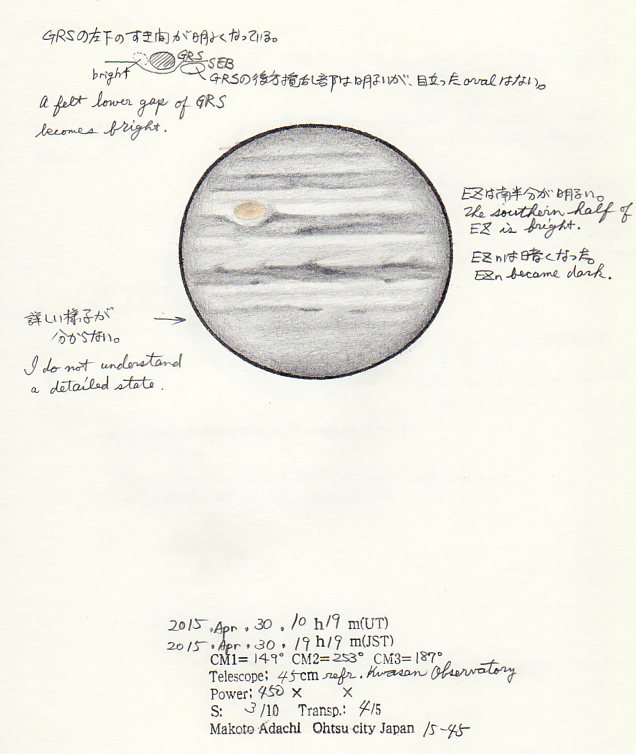 GRSの左下のすき間が明るくなっている。
GRS
SEB
bright
GRSの後方擾乱部は明るいが、目立ったovalはない。
A felt lower gap of GRS
becomes bright.
EZは南半分が明るい。
The southern half of
EZ is bright.
EZnは暗くなった。
EZn became dark.
詳しい様子が
分からない。
I do not understand
a detailed state.
2015.Apr.30.10h19m(UT)
2015.Apr.30.19h19m(JST)
CM1=149° CM2=253° CM3=187°
Telescope; 45cm refr. Kwasan Observatory
Power; 450× ×
S: 3/10 Transp.: 4/5
Makoto Adachi Ohtsu city Japan 15-45